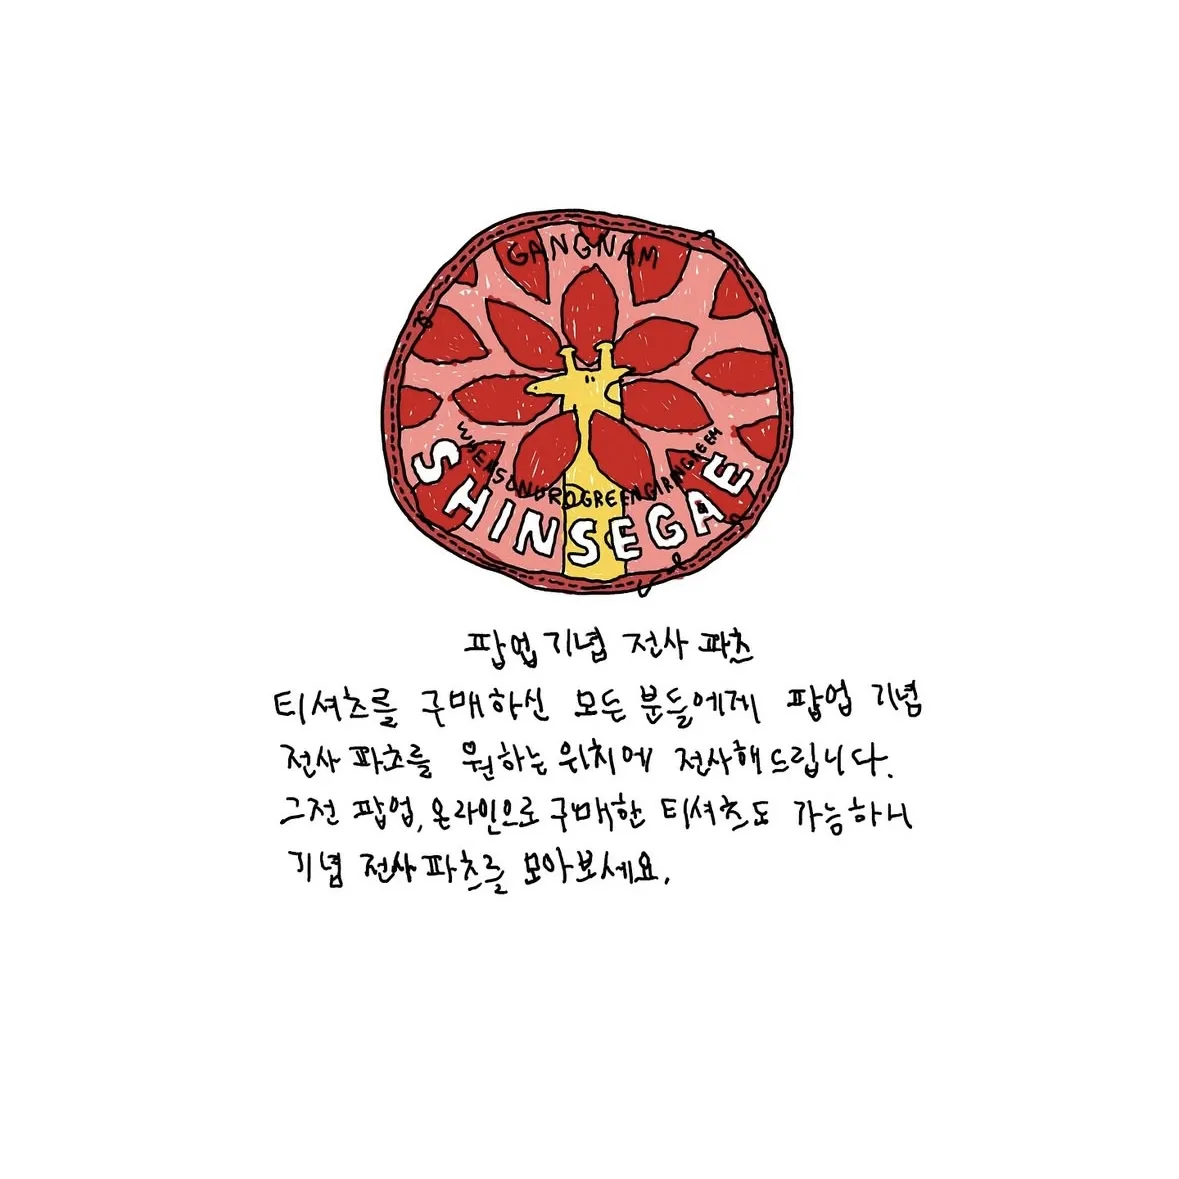 GANGNAM
SHINSEGAE
팝업 기념 전사 파츠
티셔츠를 구매하신 모든 분들에게 팝업 기념
전사 파츠를 원하는 위치에 전사해드립니다.
그전 팝업, 온라인으로 구매한 티셔츠도 가능하니
기념 전사 파츠를 모아보세요.